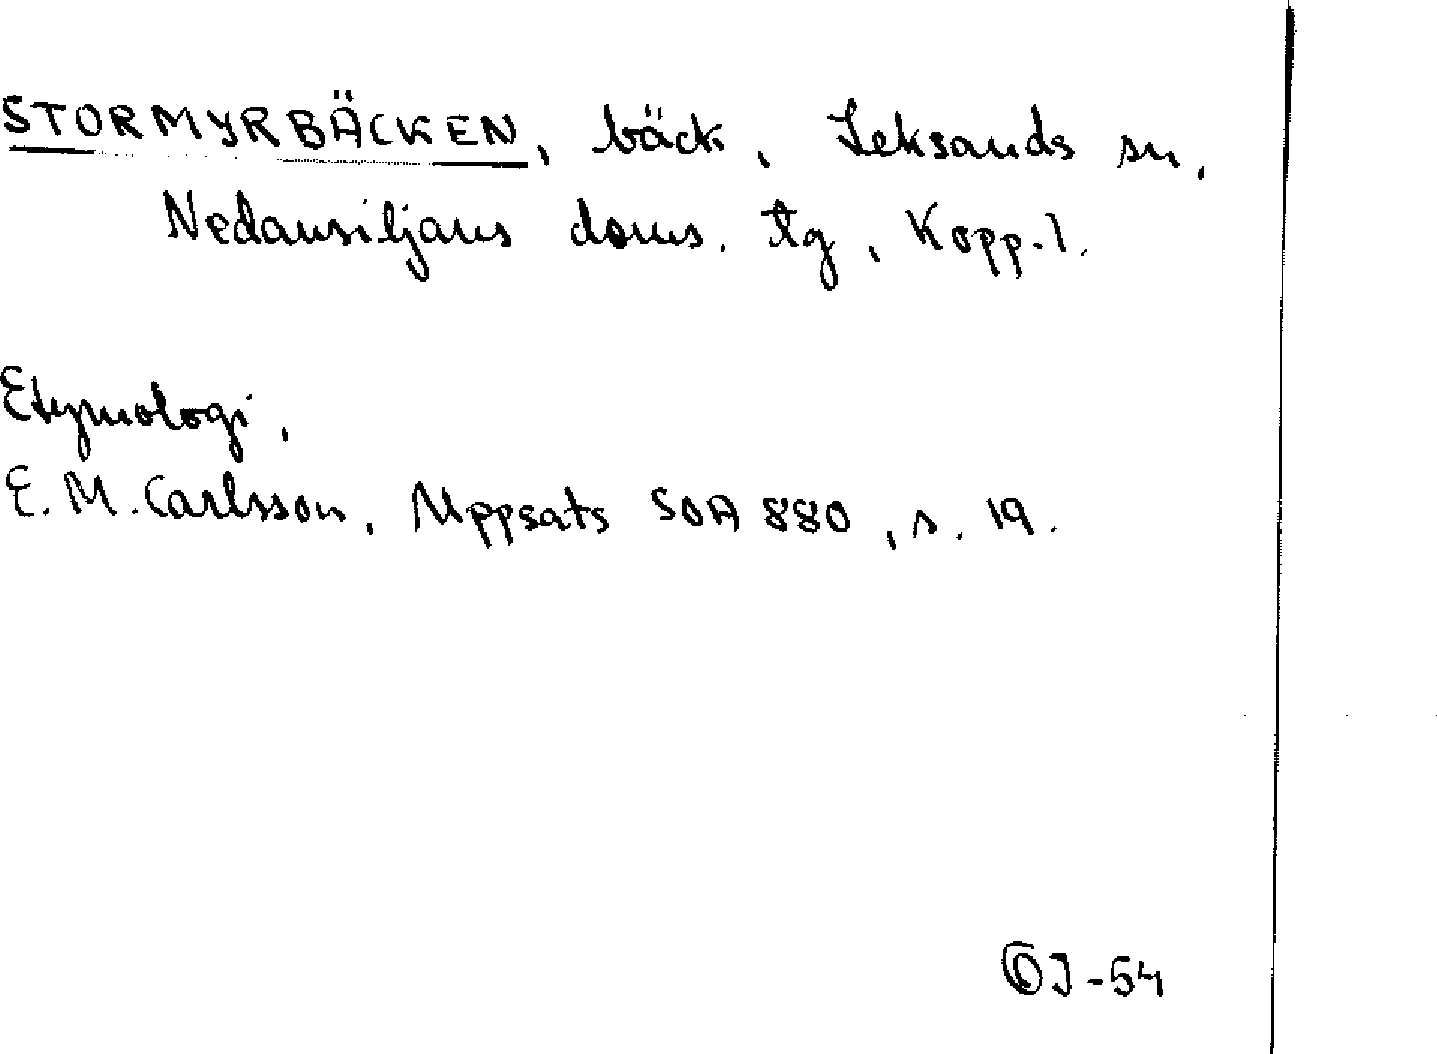 STORMYRBÄCKEN, bäck, Leksands sn,
Nedansiljans doms. tg, Kopp. l.
Etymologi,
E. M. Carlsson, Uppsats SOA 880, s. 19.
J-54